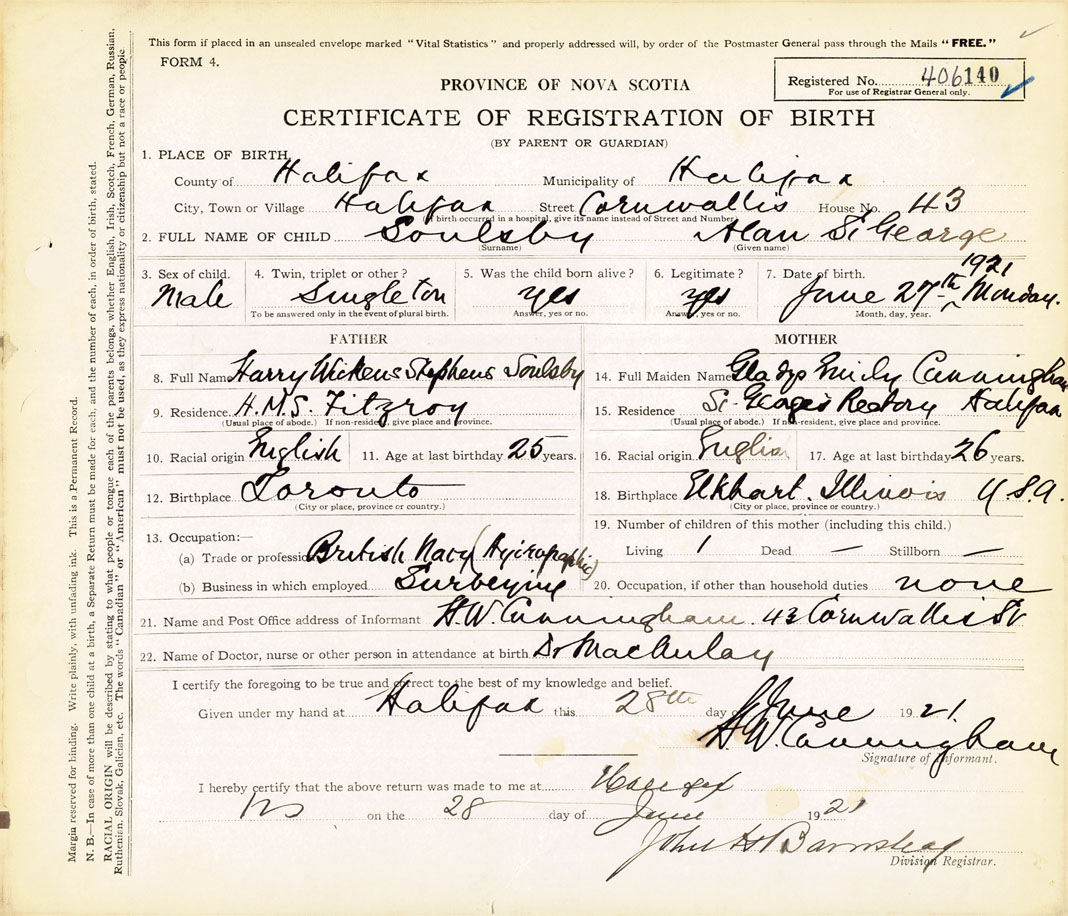 This form if placed in an unsealed envelope marked "Vital Statistics" and properly addressed will, by order of the Postmaster General pass through the Mails "FREE."
FORM 4.
Registered No. 406140
For use of Registrar General only.
PROVINCE OF NOVA SCOTIA
CERTIFICATE OF REGISTRATION OF BIRTH
(BY PARENT OR GUARDIAN)
1. PLACE OF BIRTH,
County of Halifax Municipality of Halifax
City, Town or Village Halifax Street Cornwallis House No. 43
(If birth occurred in a hospital, give its name instead of Street and Number)
2. FULL NAME OF CHILD Soulsby Alan St George
(Surname) (Given name)
3. Sex of child. 4. Twin, triplet or other? 5. Was the child born alive? 6. Legitimate? 7. Date of birth. 1921
Male Singleton yes yes June 27th Monday.
To be answered only in the event of plural birth. Answer, yes or no. Answer, yes or no. Month, day, year.
FATHER MOTHER
8. Full Name Harry Wickens Stephens Soulsby 14. Full Maiden Name Gladys Emily Cunningham
9. Residence H.M.S. Fitzroy 15. Residence St. George's Rectory Halifax
(Usual place of abode.) If non-resident, give place and province. (Usual place of abode.) If non-resident, give place and province.
10. Racial origin English 11. Age at last birthday 25 years. 16. Racial origin English 17. Age at last birthday 26 years.
12. Birthplace Toronto 18. Birthplace Elkhart. Illinois U.S.A.
(City or place, province or country.) (City or place, province or country.)
13. Occupation:— 19. Number of children of this mother (including this child.)
(a) Trade or profession British Navy Living 1 Dead — Stillborn —
(b) Business in which employed Surveying 20. Occupation, if other than household duties none
21. Name and Post Office address of Informant H.W. Cunningham. 43 Cornwallis St
22. Name of Doctor, nurse or other person in attendance at birth Dr
I certify the foregoing to be true and correct to the best of my knowledge and belief.
Given under my hand at Halifax this 28th day of June 1921.
H.W. Cunningham
Signature of Informant.
I hereby certify that the above return was made to me at Halifax
NS on the 28 day of June 1921
John H Barnstead
Division Registrar.
Margin reserved for binding. Write plainly, with unfading ink. This is a Permanent Record.
N. B.—In case of more than one child at a birth, a Separate Return must be made for each, and the number of each, in order of birth, stated.
RACIAL ORIGIN will be described by stating to what people or tongue each of the parents belongs, whether English, Irish, Scotch, French, German, Russian,
Ruthenian, Slovak, Galician, etc. The words "Canadian" or "American" must not be used, as they express nationality or citizenship but not a race or people